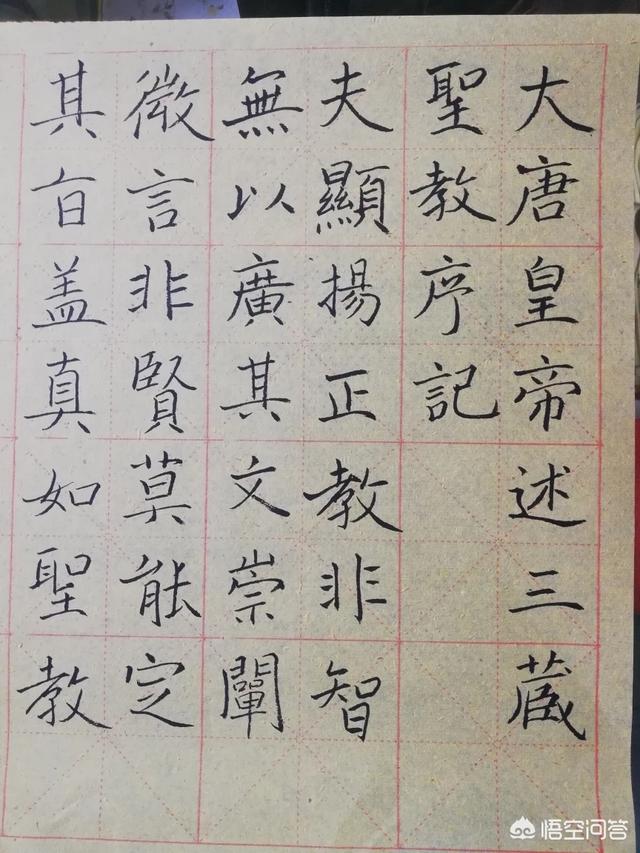 大唐皇帝述三蔵
聖教序記
夫顯揚正教非智
無以廣其文崇闡
微言非賢莫能定
其㫖盖真如聖教
悟空问答